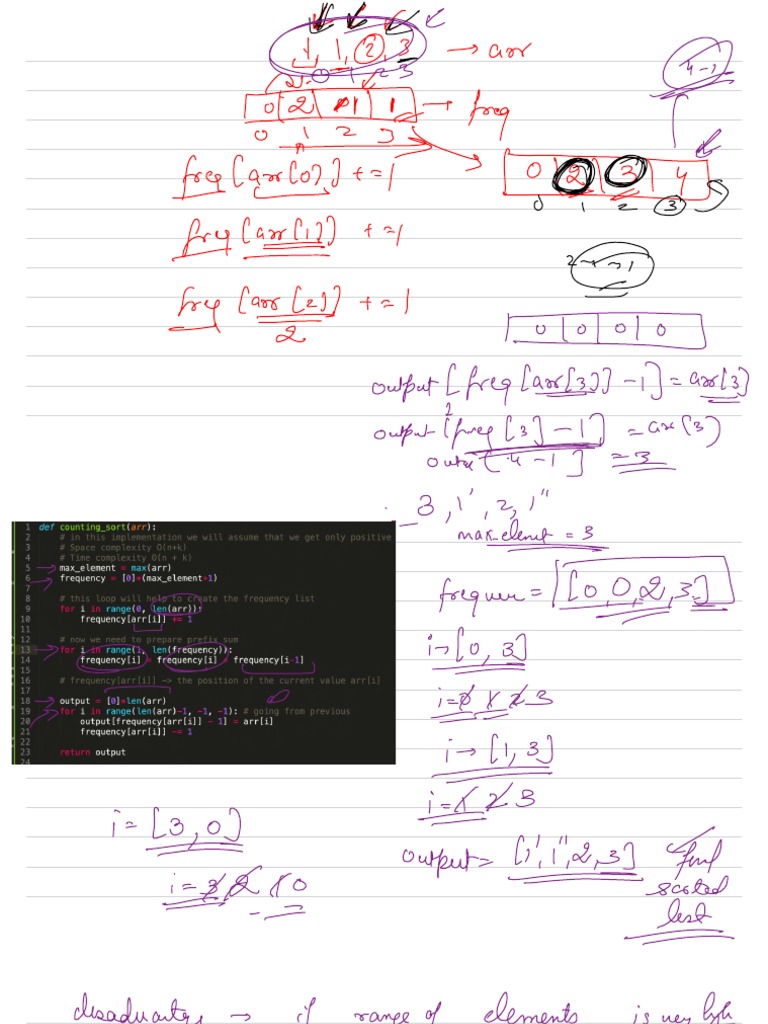 1, 1, 2, 3 → arr
0 1 2 3
4-1
0 2 1 1 → freq
0 1 2 3
0 2 3 4
0 1 2 3
freq[arr[0]] += 1
freq[arr[1]] += 1
2 → 1
freq[arr[2]] += 1
2
0 0 0 0
output[freq[arr[3]] -1] = arr[3]
2
output[freq[3] -1] = arr[3]
[4-1] = 3
3, 1', 2, 1"
max_element = 3
1 def counting_sort(arr):
2 # in this implementation we will assume that we get only positive
3 # Space complexity O(n+k)
4 # Time complexity O(n + k)
5 max_element = max(arr)
6 frequency = [0]*(max_element+1)
7
8 # this loop will help to create the frequency list
9 for i in range(0, len(arr)):
10 frequency[arr[i]] += 1
11
12 # now we need to prepare prefix sum
13 for i in range(1, len(frequency)):
14 frequency[i] = frequency[i] + frequency[i-1]
15
16 # frequency[arr[i]] -> the position of the current value arr[i]
17
18 output = [0]*len(arr)
19 for i in range(len(arr)-1, -1, -1): # going from previous
20 output[frequency[arr[i]] - 1] = arr[i]
21 frequency[arr[i]] -= 1
22
23 return output
24
= [0, 0, 2, 3]
i → [0, 3]
i = 0 1 2 3
i → [1, 3]
i = 1 2 3
i = [3, 0]
i = 3 2 1 0
output = [1', 1", 2, 3] final
sorted
list
→ if range of elements is very